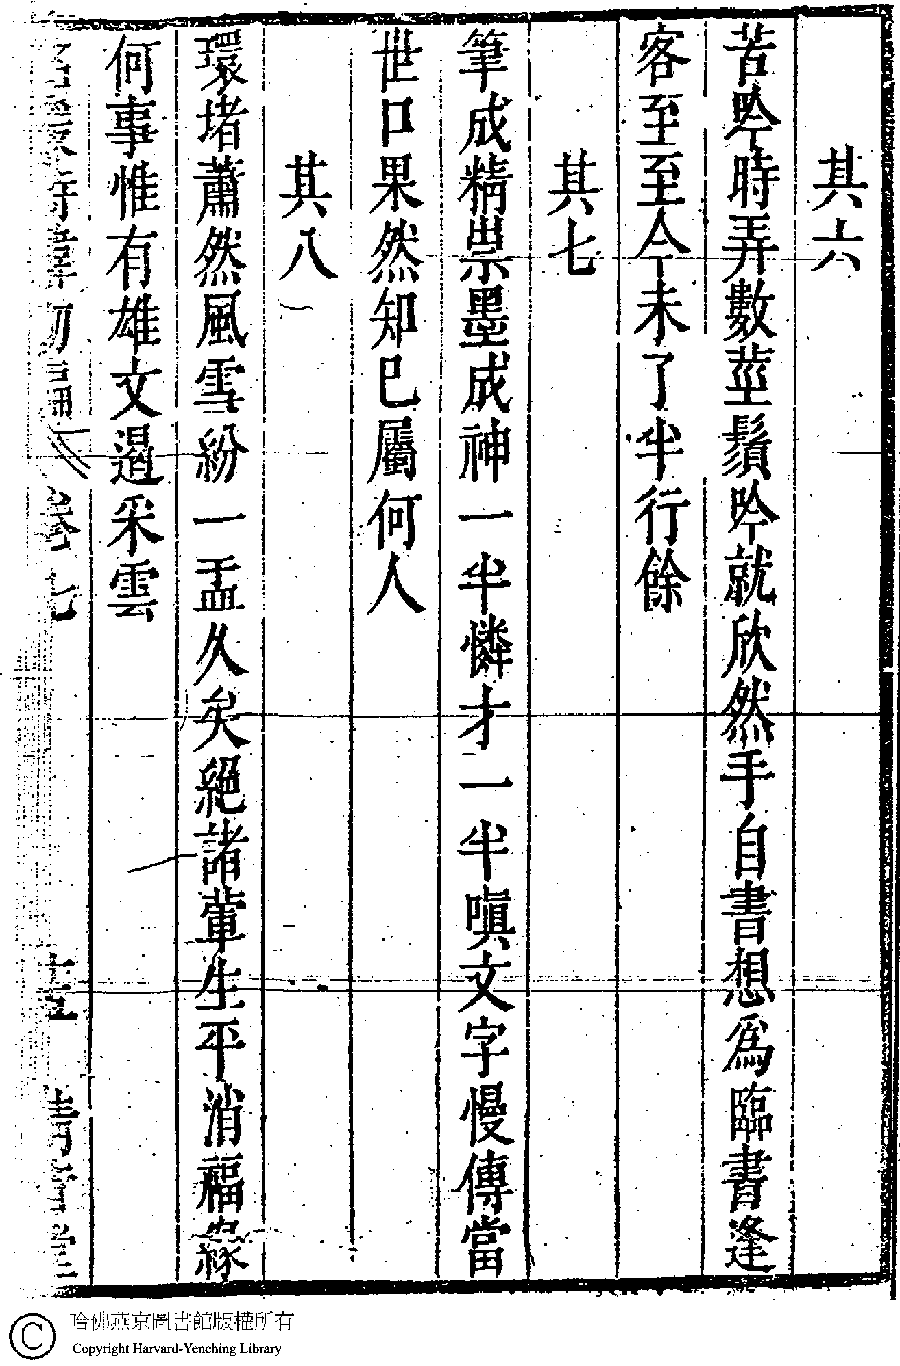 其六
苦吟時弄數莖鬚吟就欣然手自書想爲臨書逢
客至至今未了半行餘
其七
筆成精祟墨成神一半憐才一半嗔文字慢傳當
世口果然知已屬何人
其八
環堵蕭然風雪紛一盂久矣絕諸葷生平消福緣
何事惟有雄文遏采雲
卷七
哈佛燕京圖書館版權所有
Copyright Harvard-Yenching Library